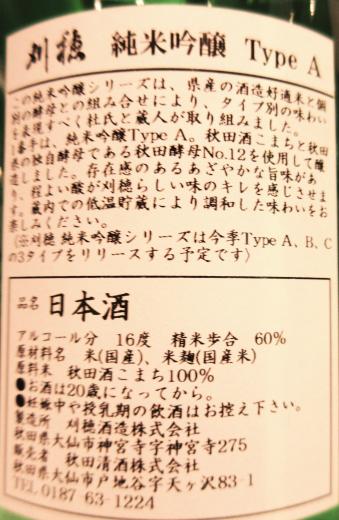 刈穂 純米吟醸 Type A
この純米吟醸シリーズは、県産の酒造好適米と個
別の酵母との組み合せにより、タイプ別の味わい
を表現すべく杜氏と蔵人が取り組みました。
1番手は、純米吟醸Type A。秋田酒こまちと秋田
県の独自酵母である秋田酵母No.12を使用して醸
造しました。存在感のあるあざやかな旨味があ
り、程よい酸が刈穂らしい味のキレを感じさせま
す。蔵内での低温貯蔵により調和した味わいをお
楽しみください。
(※刈穂 純米吟醸シリーズは今季Type A、B、C
の3タイプをリリースする予定です)
品名 日本酒
アルコール分 16度 精米歩合 60%
原材料名 米(国産)、米麹(国産米)
原料米 秋田酒こまち100%
●お酒は20歳になってから。
●妊娠中や授乳期の飲酒はお控え下さい。
製造所 刈穂酒造株式会社
秋田県大仙市神宮寺字神宮寺275
販売者 秋田清酒株式会社
秋田県大仙市戸地谷字天ヶ沢83-1
TEL 0187-63-1224